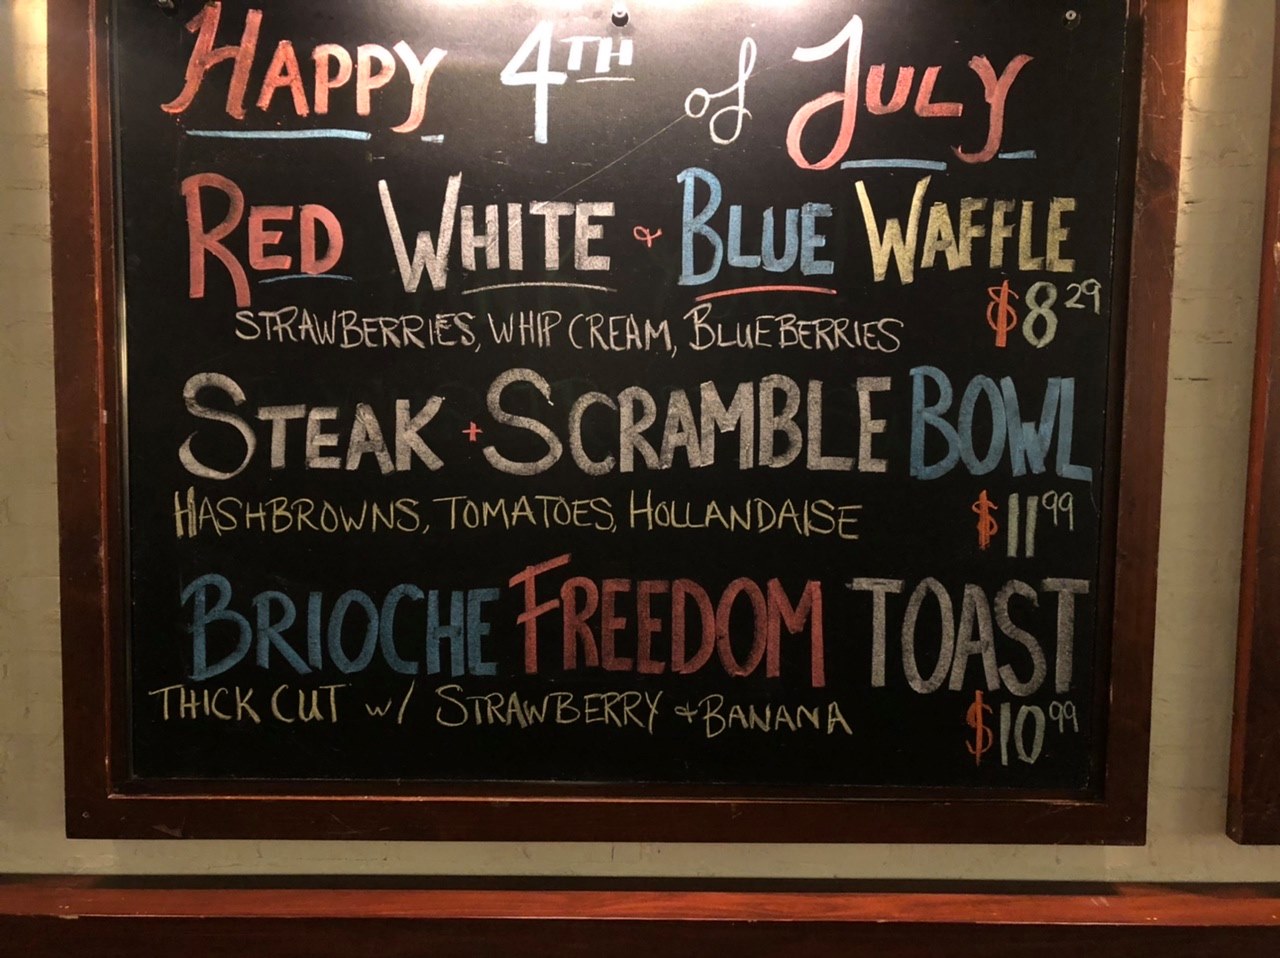 HAPPY 4TH of JULY
RED WHITE & BLUE WAFFLE
$8 29
STRAWBERRIES, WHIP CREAM, BLUEBERRIES
STEAK + SCRAMBLE BOWL
HASHBROWNS, TOMATOES, HOLLANDAISE $11 99
BRIOCHE FREEDOM TOAST
THICK CUT w/ STRAWBERRY + BANANA $10 99